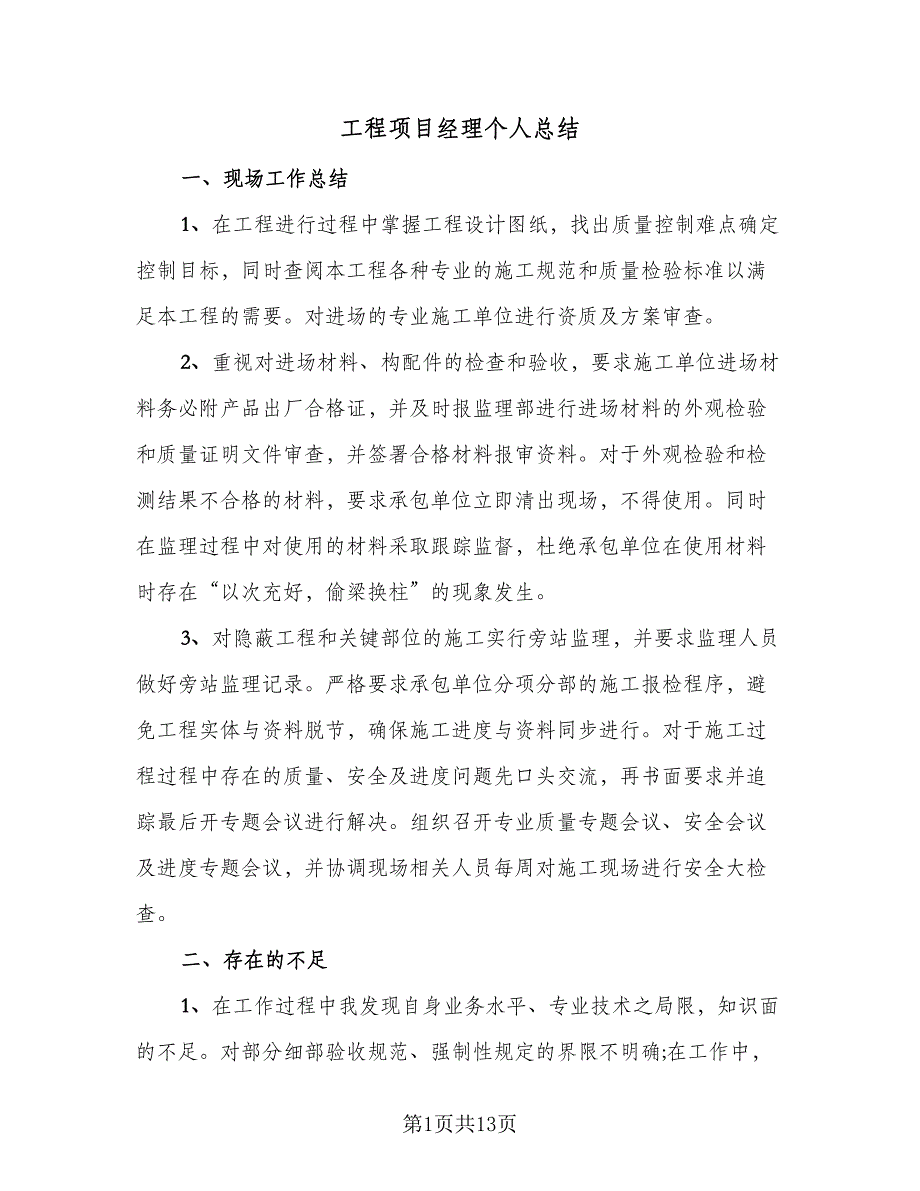 工程项目经理个人总结
一、现场工作总结
1、在工程进行过程中掌握工程设计图纸，找出质量控制难点确定
控制目标，同时查阅本工程各种专业的施工规范和质量检验标准以满
足本工程的需要。对进场的专业施工单位进行资质及方案审查。
2、重视对进场材料、构配件的检查和验收，要求施工单位进场材
料务必附产品出厂合格证，并及时报监理部进行进场材料的外观检验
和质量证明文件审查，并签署合格材料报审资料。对于外观检验和检
测结果不合格的材料，要求承包单位立即清出现场，不得使用。同时
在监理过程中对使用的材料采取跟踪监督，杜绝承包单位在使用材料
时存在“以次充好，偷梁换柱”的现象发生。
3、对隐蔽工程和关键部位的施工实行旁站监理，并要求监理人员
做好旁站监理记录。严格要求承包单位分项分部的施工报检程序，避
免工程实体与资料脱节，确保施工进度与资料同步进行。对于施工过
程过程中存在的质量、安全及进度问题先口头交流，再书面要求并追
踪最后开专题会议进行解决。组织召开专业质量专题会议、安全会议
及进度专题会议，并协调现场相关人员每周对施工现场进行安全大检
查。
二、存在的不足
1、在工作过程中我发现自身业务水平、专业技术之局限，知识面
的不足。对部分细部验收规范、强制性规定的界限不明确;在工作中，
第1页共13页